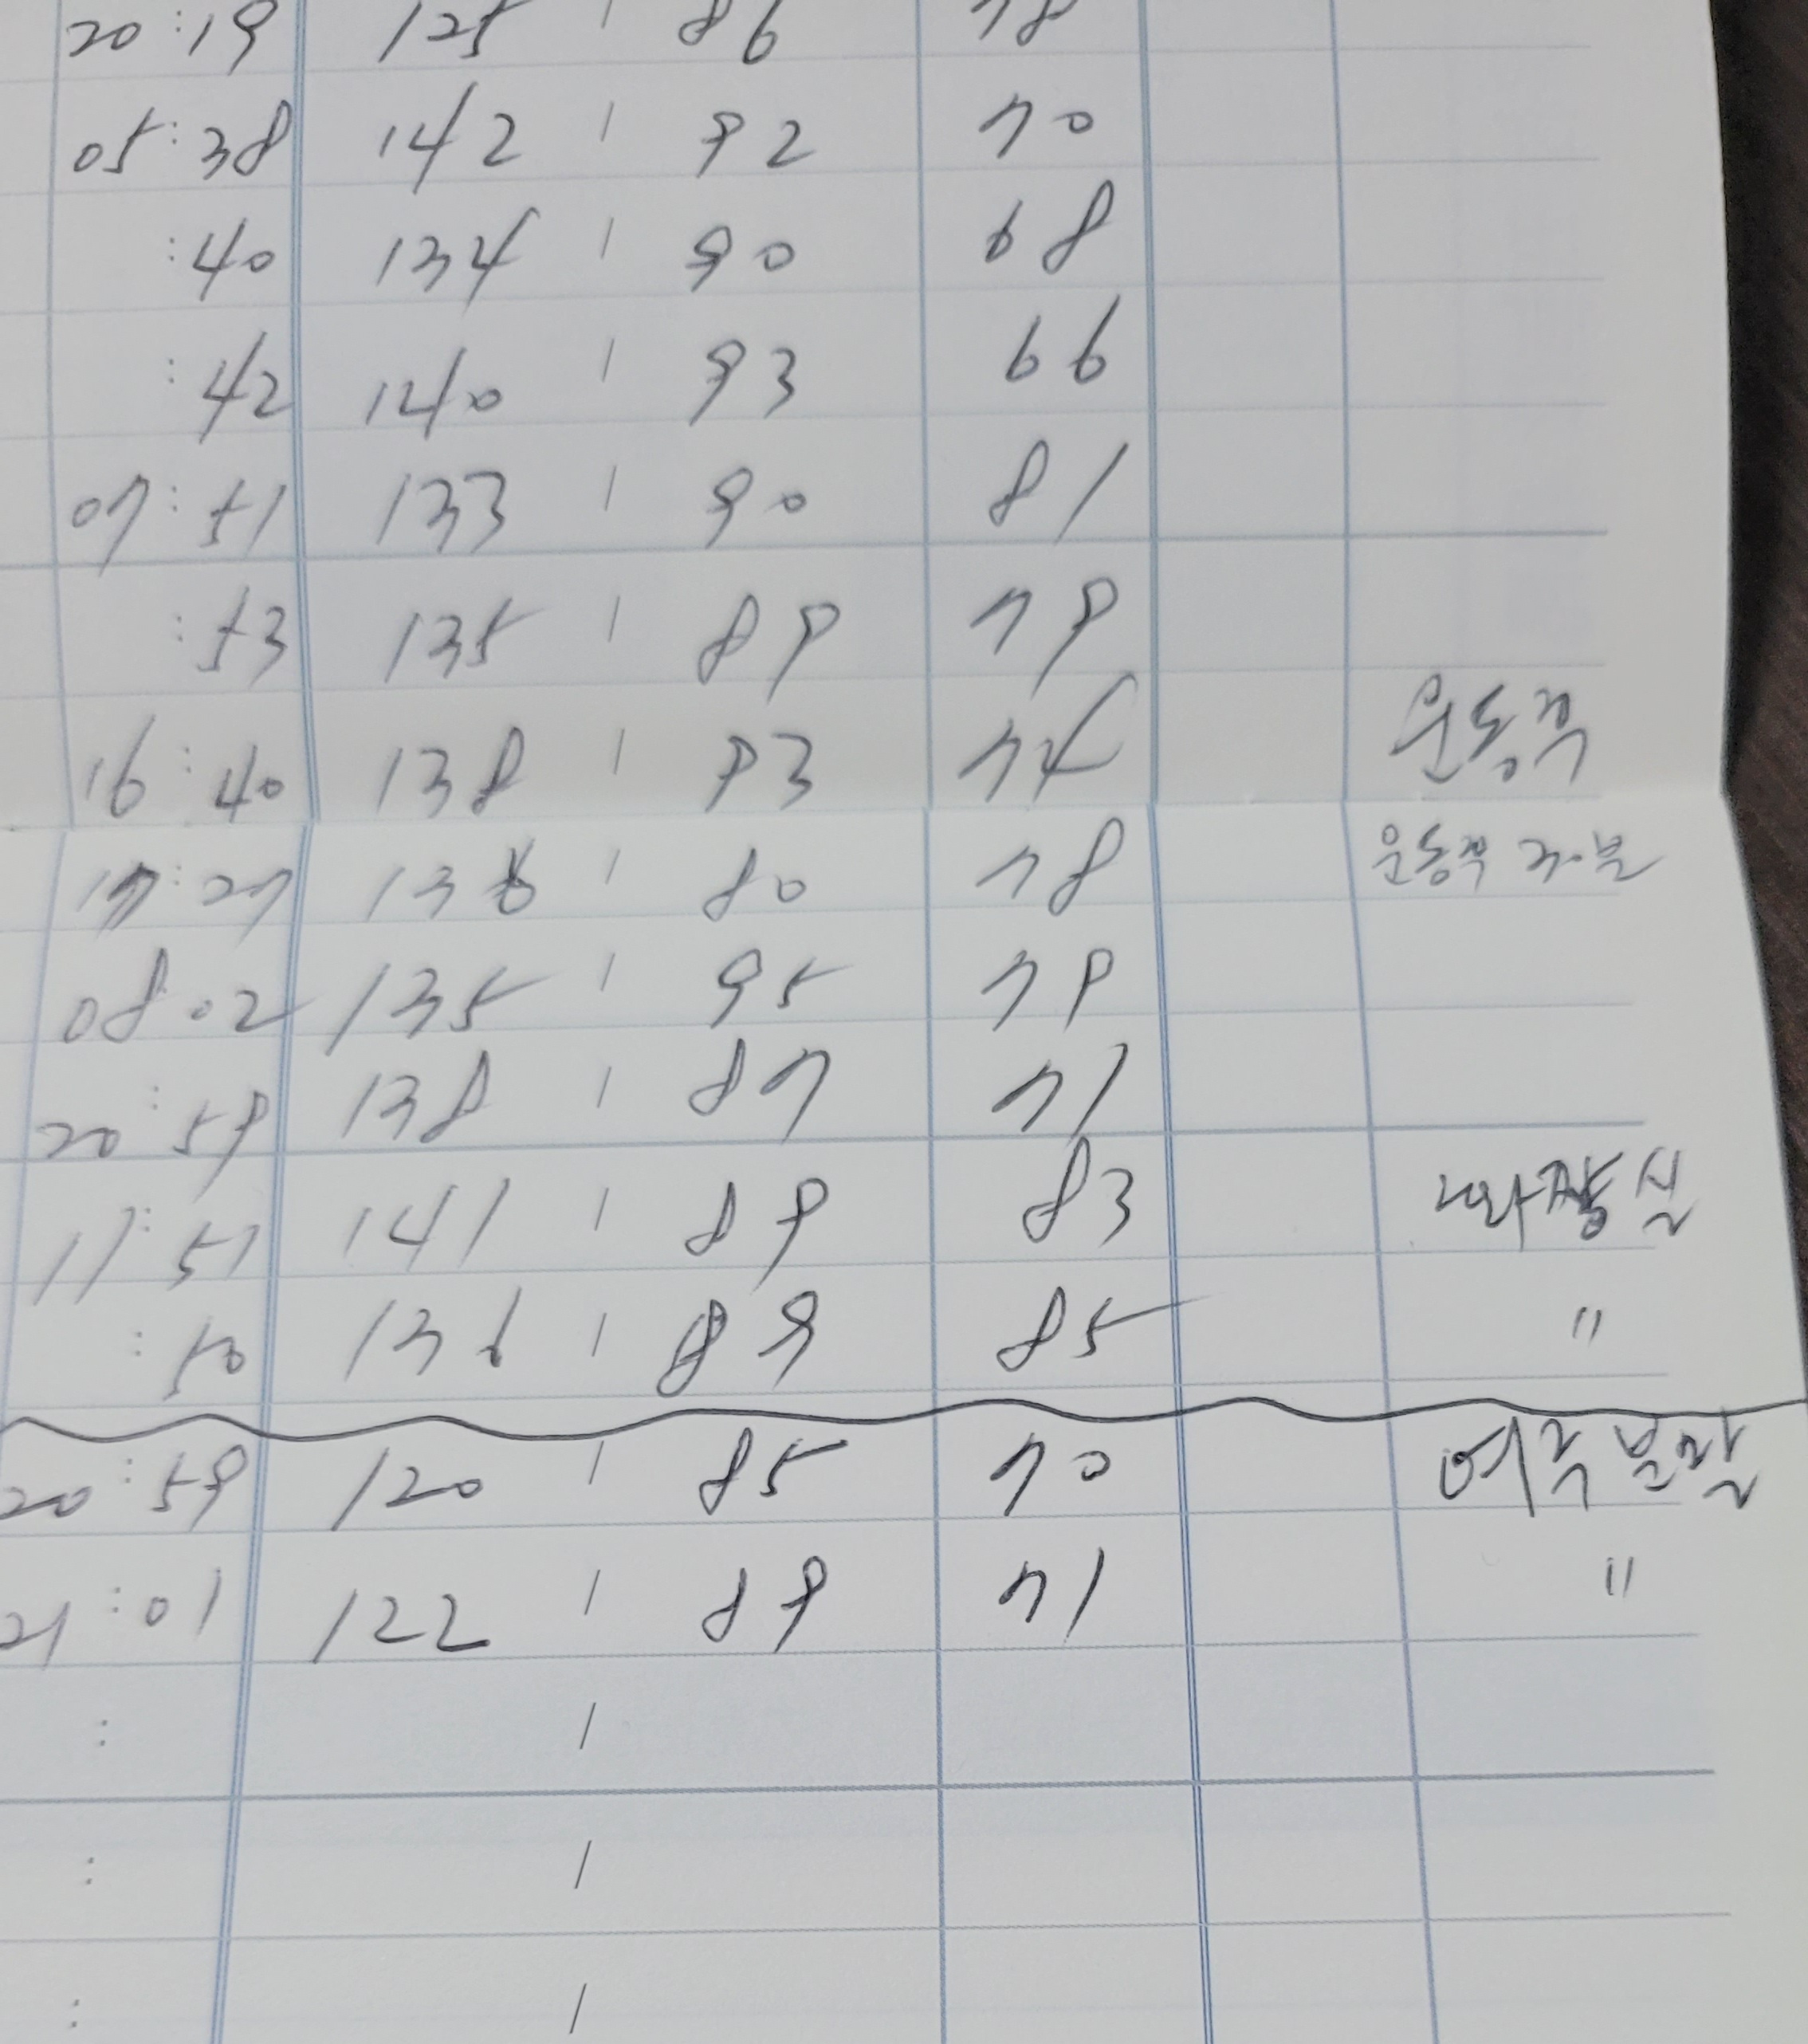 20:19 125 / 86 78
05:38 142 / 92 70
:40 134 / 90 68
:42 140 / 93 66
07:51 133 / 90 81
:53 135 / 89 79
16:40 138 / 93 74 운동후
17:27 136 / 80 78 운동후 20분
08:02 135 / 95 79
20:59 138 / 87 71
11:51 141 / 89 83
:50 136 / 89 85 "
20:59 120 / 85 70
21:01 122 / 89 71 "
: /
: /
: /